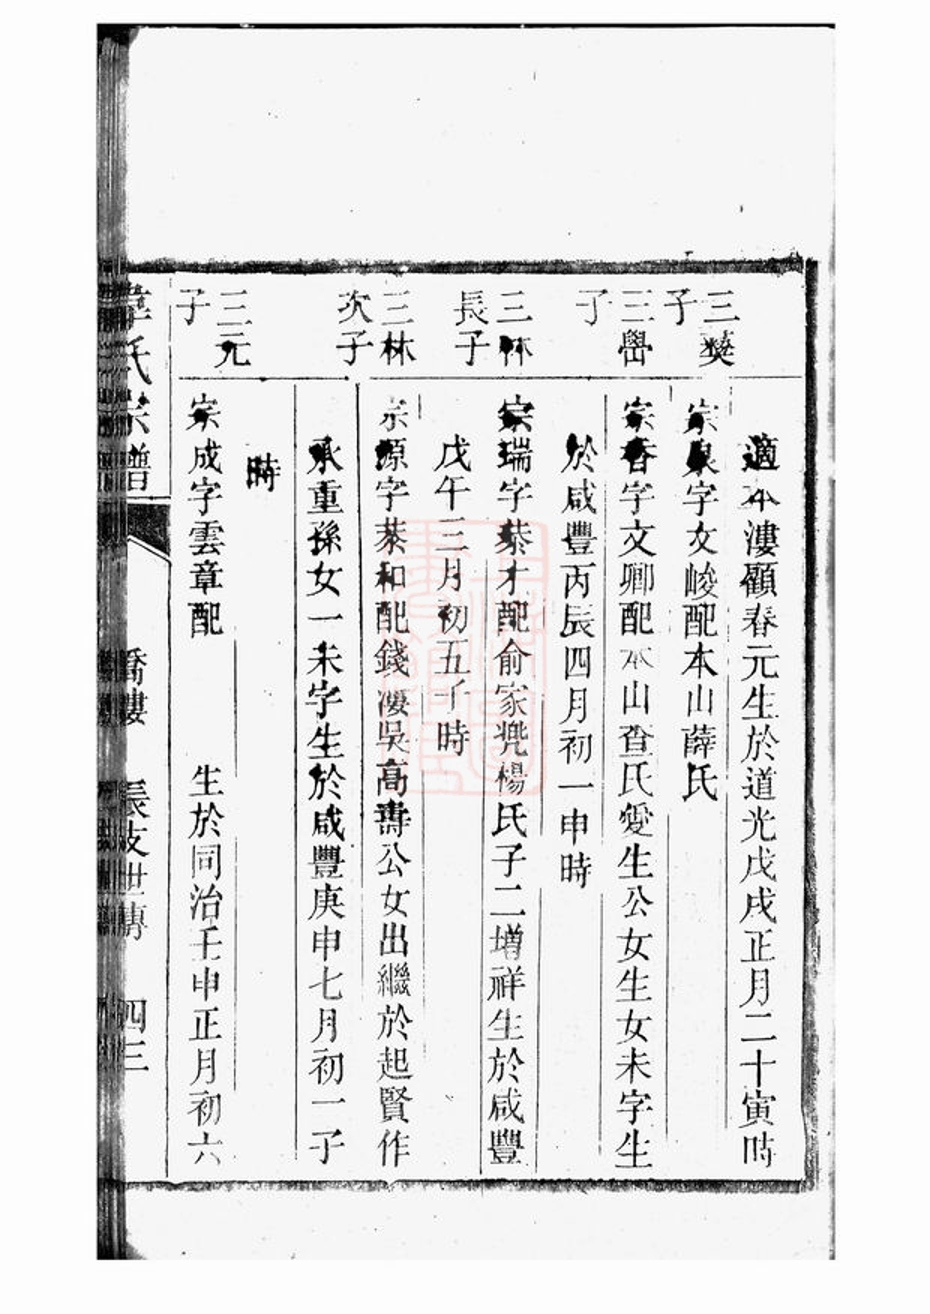 適本漊顧春元生於道光戊戌正月二十寅時
三奬子
宗泉字文峻配本山薛氏
三嚳子
宗香字文卿配本山查氏愛生公女生女未字生
於咸豐丙辰四月初一申時
三林長子
宗瑞字恭才配俞家兜楊氏子二增祥生於咸豐
戊午三月初五子時
三林次子
宗源字恭和配錢漊吳高壽公女出繼於起賢作
承重孫女一未字生於咸豐庚申七月初一子
時
三元子
宗成字雲章配 生於同治壬申正月初六
韋氏宗譜 喬漊 長支世傳 四三